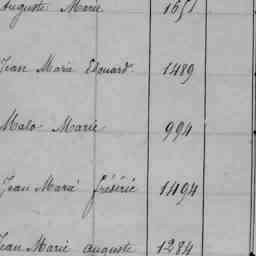 Auguste Marie 1651
Jean Marie Edouard 1489
Malo Marie 994
Jean Marie frédéric 1494
Jean Marie auguste 1284